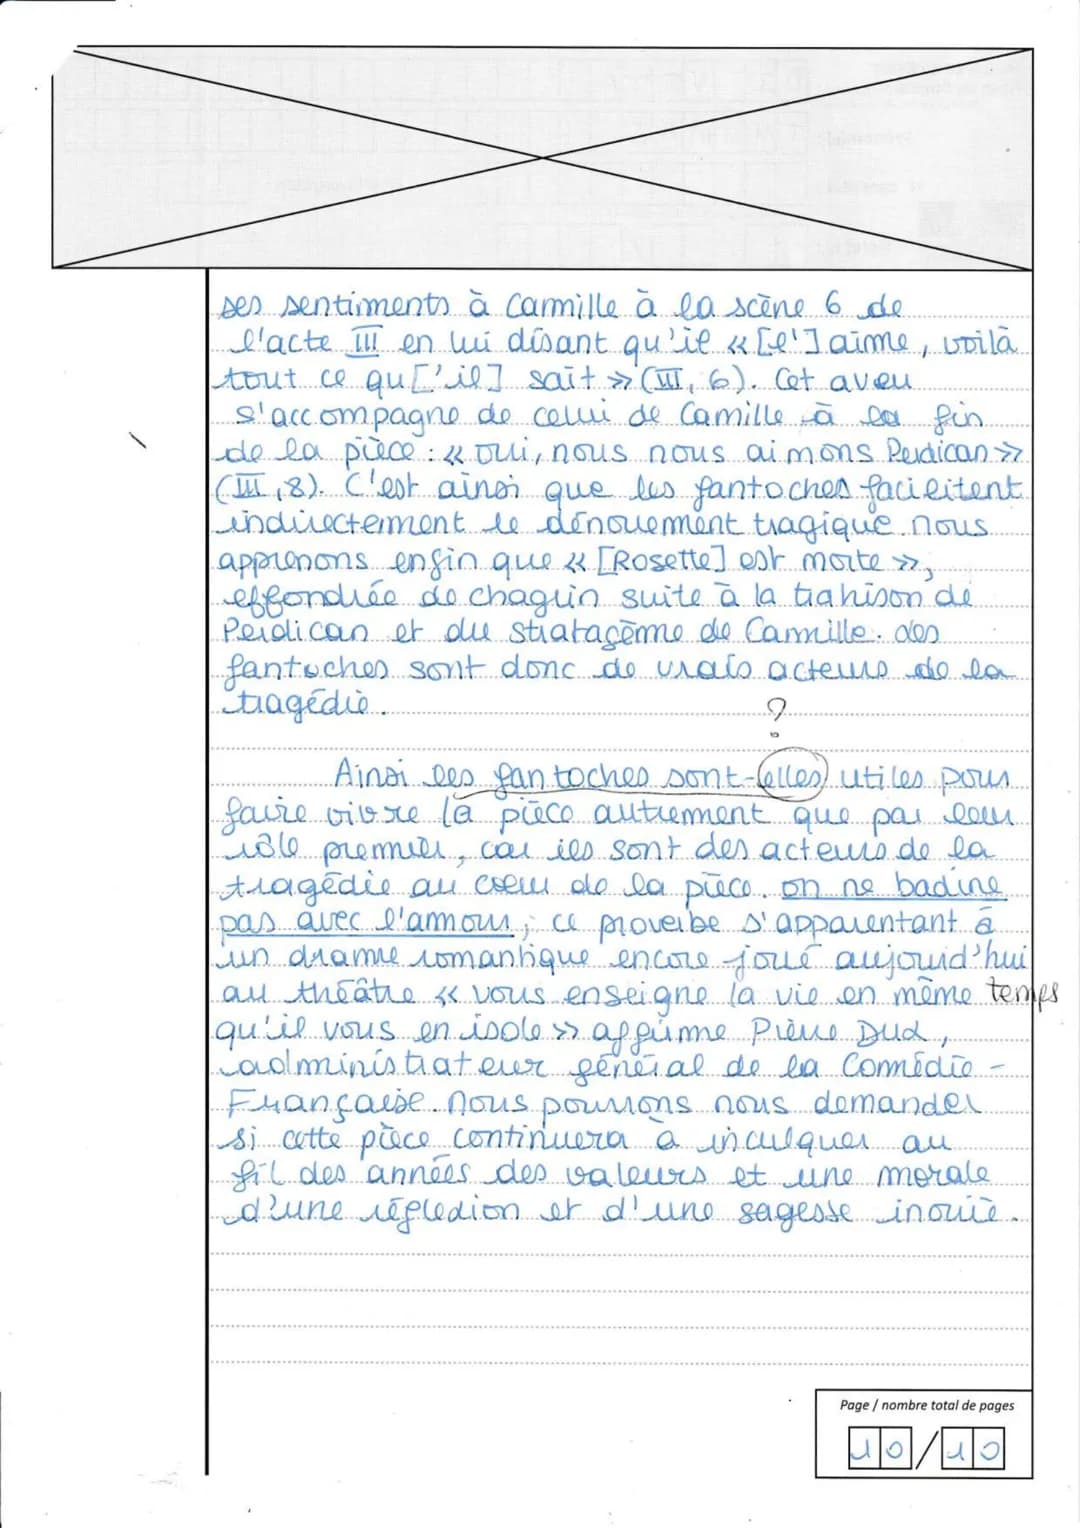 ses sentiments à Camille à la scène 6 de
l'acte III en lui disant qu'il « [l']aime, voilà
tout ce qu['il] sait » (III, 6). Cet aveu
s'accompagne de celui de Camille à la fin
de la pièce : « oui, nous nous aimons Perdican »
(III, 8). C'est ainsi que les fantoches facilitent
indirectement le dénouement tragique. nous
apprenons enfin que « [Rosette] est morte »,
effondrée de chagrin suite à la trahison de
Perdican et du stratagème de Camille. des
fantoches sont donc de vrais acteurs de la
tragédie.
?
Ainsi les fantoches sont-elles utiles pour
faire vivre la pièce autrement que par leur
rôle premier, car ils sont des acteurs de la
tragédie au coeur de la pièce. on ne badine
pas avec l'amour ; ce proverbe s'apparentant à
un drame romantique encore joué aujourd'hui
au théâtre « vous enseigne la vie en même temps
qu'il vous en isole » affirme Pierre Dux,
administrateur général de la Comédie -
Française. Nous pourrons nous demander
si cette pièce continuera à inculquer au
fil des années des valeurs et une morale
d'une réfledion et d'une sagesse inouïe.
Page / nombre total de pages
10/10